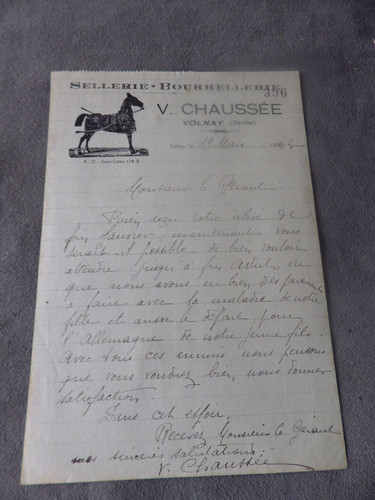 SELLERIE - BOURRELLERIE
396
V. CHAUSSÉE
VOLNAY (Sarthe)
1er Mars
R. C. Saint-Calais
Monsieur le Gérant
reçu votre relevé de
fin Janvier, maintenant vous
serait-il possible de bien vouloir
attendre jusqu'à fin Avril, vu
que nous avons eu bien des paiements
à faire avec la maladie de notre
fille et aussi le départ pour
l'Allemagne de notre jeune fils.
Avec tous ces ennuis, nous pensons
que vous voudrez bien, nous donner
satisfaction.
Dans cet espoir,
Recevez Monsieur le Gérant
nos sincères salutations.
V. Chaussée